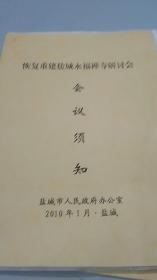 恢复重建盐城永福禅寺研讨会
会
议
须
知
盐城市人民政府办公室
2010年1月·盐城